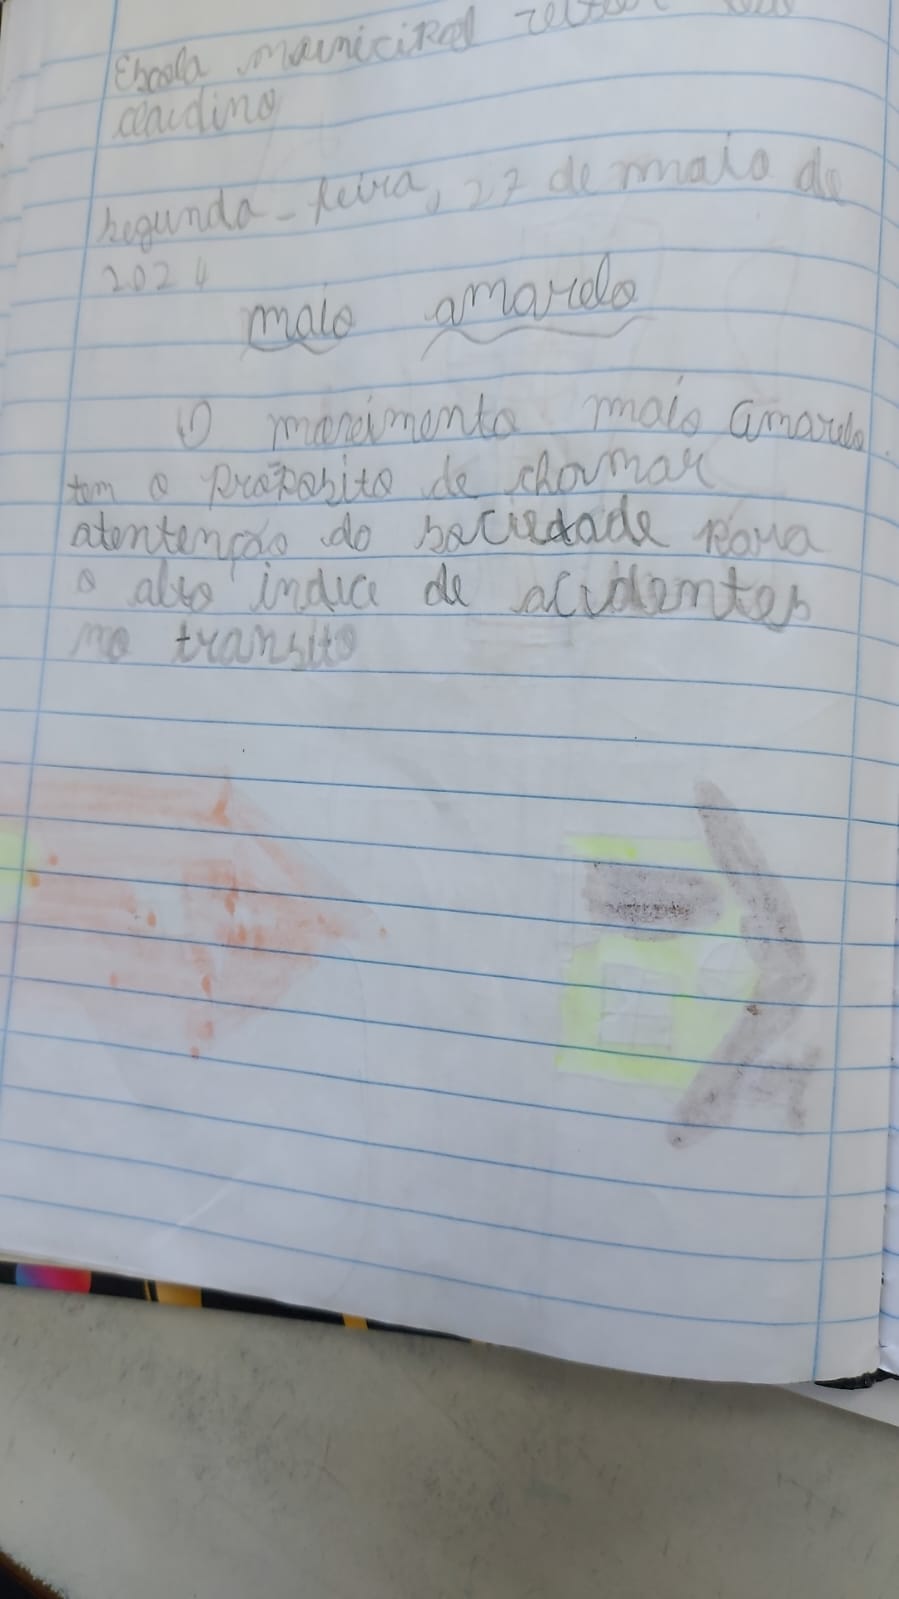 Escola municipal
claudino
segunda-feira, 27 de maio de
2024
maio amarelo
O moveimento maio amarelo
tem o propósito de chamar
atentenção da sociedade para
o alto índice de acidentes
no transito